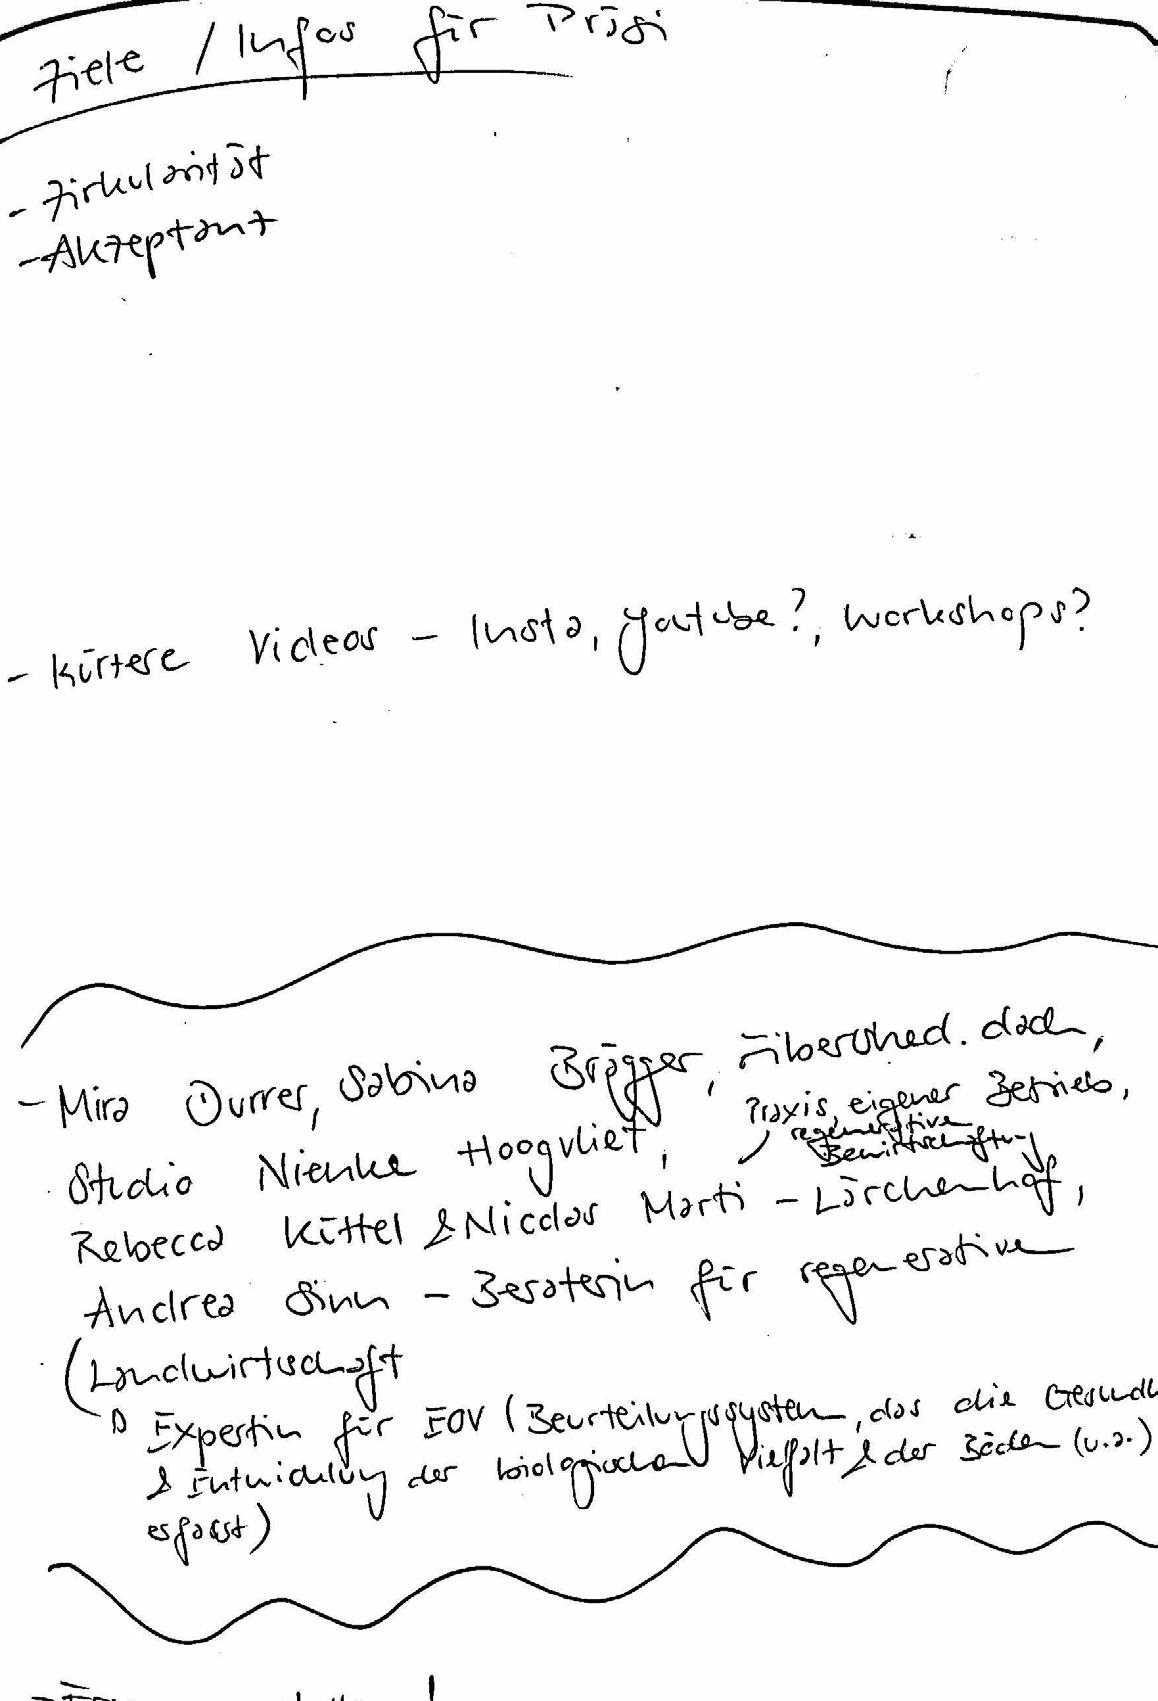 Ziele / Infos für Präsi
- Zirkularität
- Akzeptanz
- Kürzere Videos - Insta, youtube?, workshops?
- Mira Durrer, Sabina Brägger, Fibershed. dach,
Studio Nienke Hoogvliet,
Praxis, eigener Betrieb,
regenerative
Bewirtschaftung
Rebecca Küttel & Nicolas Marti - Lärchenhof,
Andrea Sinn - Beraterin für regenerative
(Landwirtschaft
Expertin für EOV (Beurteilungssystem, das die
& Entwicklung der biologischen Vielfalt & der Böden (u.a.)
erfasst)